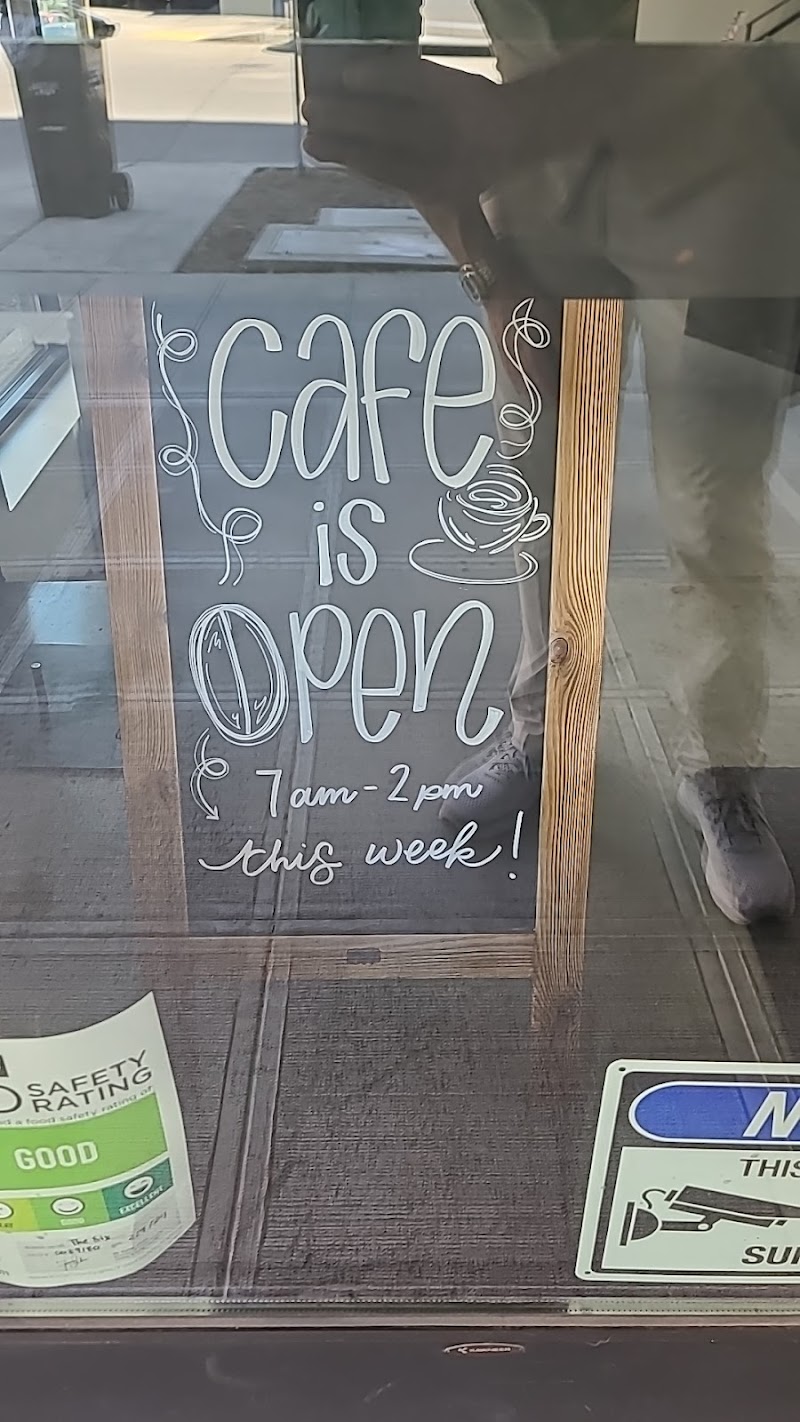 cafe
is
Open
7am - 2pm
this week!
SAFETY
RATING
a food safety rating of
GOOD
GOOD
EXCELLENT
The Six
THIS